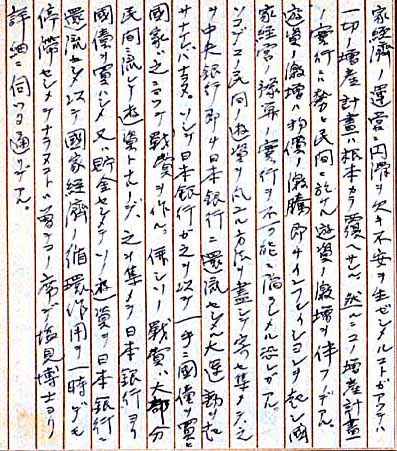 家経済ノ運営ニ円滑ヲ欠キ不安ヲ生ゼシムルコトガアツテハ
一切ノ増産計画ハ根本カラ覆ヘサレル、然ルニコノ増産計画
ノ実行ニ努ムル民間ニ於ケル遊資ノ激増ヲ伴フノデアル。
遊資ノ激増ハ物価ノ激騰即チインフレイシヨンヲ起シ国
家経営ノ豫算ノ実行ヲ不可能ニ陥ラシメル恐レガアル。
ソコデコノ民間ノ遊資ヲ凡ユル方法ヲ盡シテ寄セ集メテ、之
ヲ中央銀行即チ日本銀行ニ還流セシメル大運動ヲ起
サナケレバナラヌ。ソシテ日本銀行ガ之ヲ以テ一手ニ国債ヲ買ヒ
国家ハ之ニヨツテ戦費ヲ作ル。併シソノ戦費ハ大部分
民間ニ流レテ遊資トナルノデ、之ヲ集メテ日本銀行ヨリ
国債ヲ買ハシメ又ハ貯金セシメテソノ遊資ヲ日本銀行ニ
還流セシメ以テ国家経済ノ循環作用ヲ一時デモ
停滞セシメテハナラヌコトハ曽テコノ席デ塩見博士ヨリ
詳細ニ伺ツタ通リデアル。